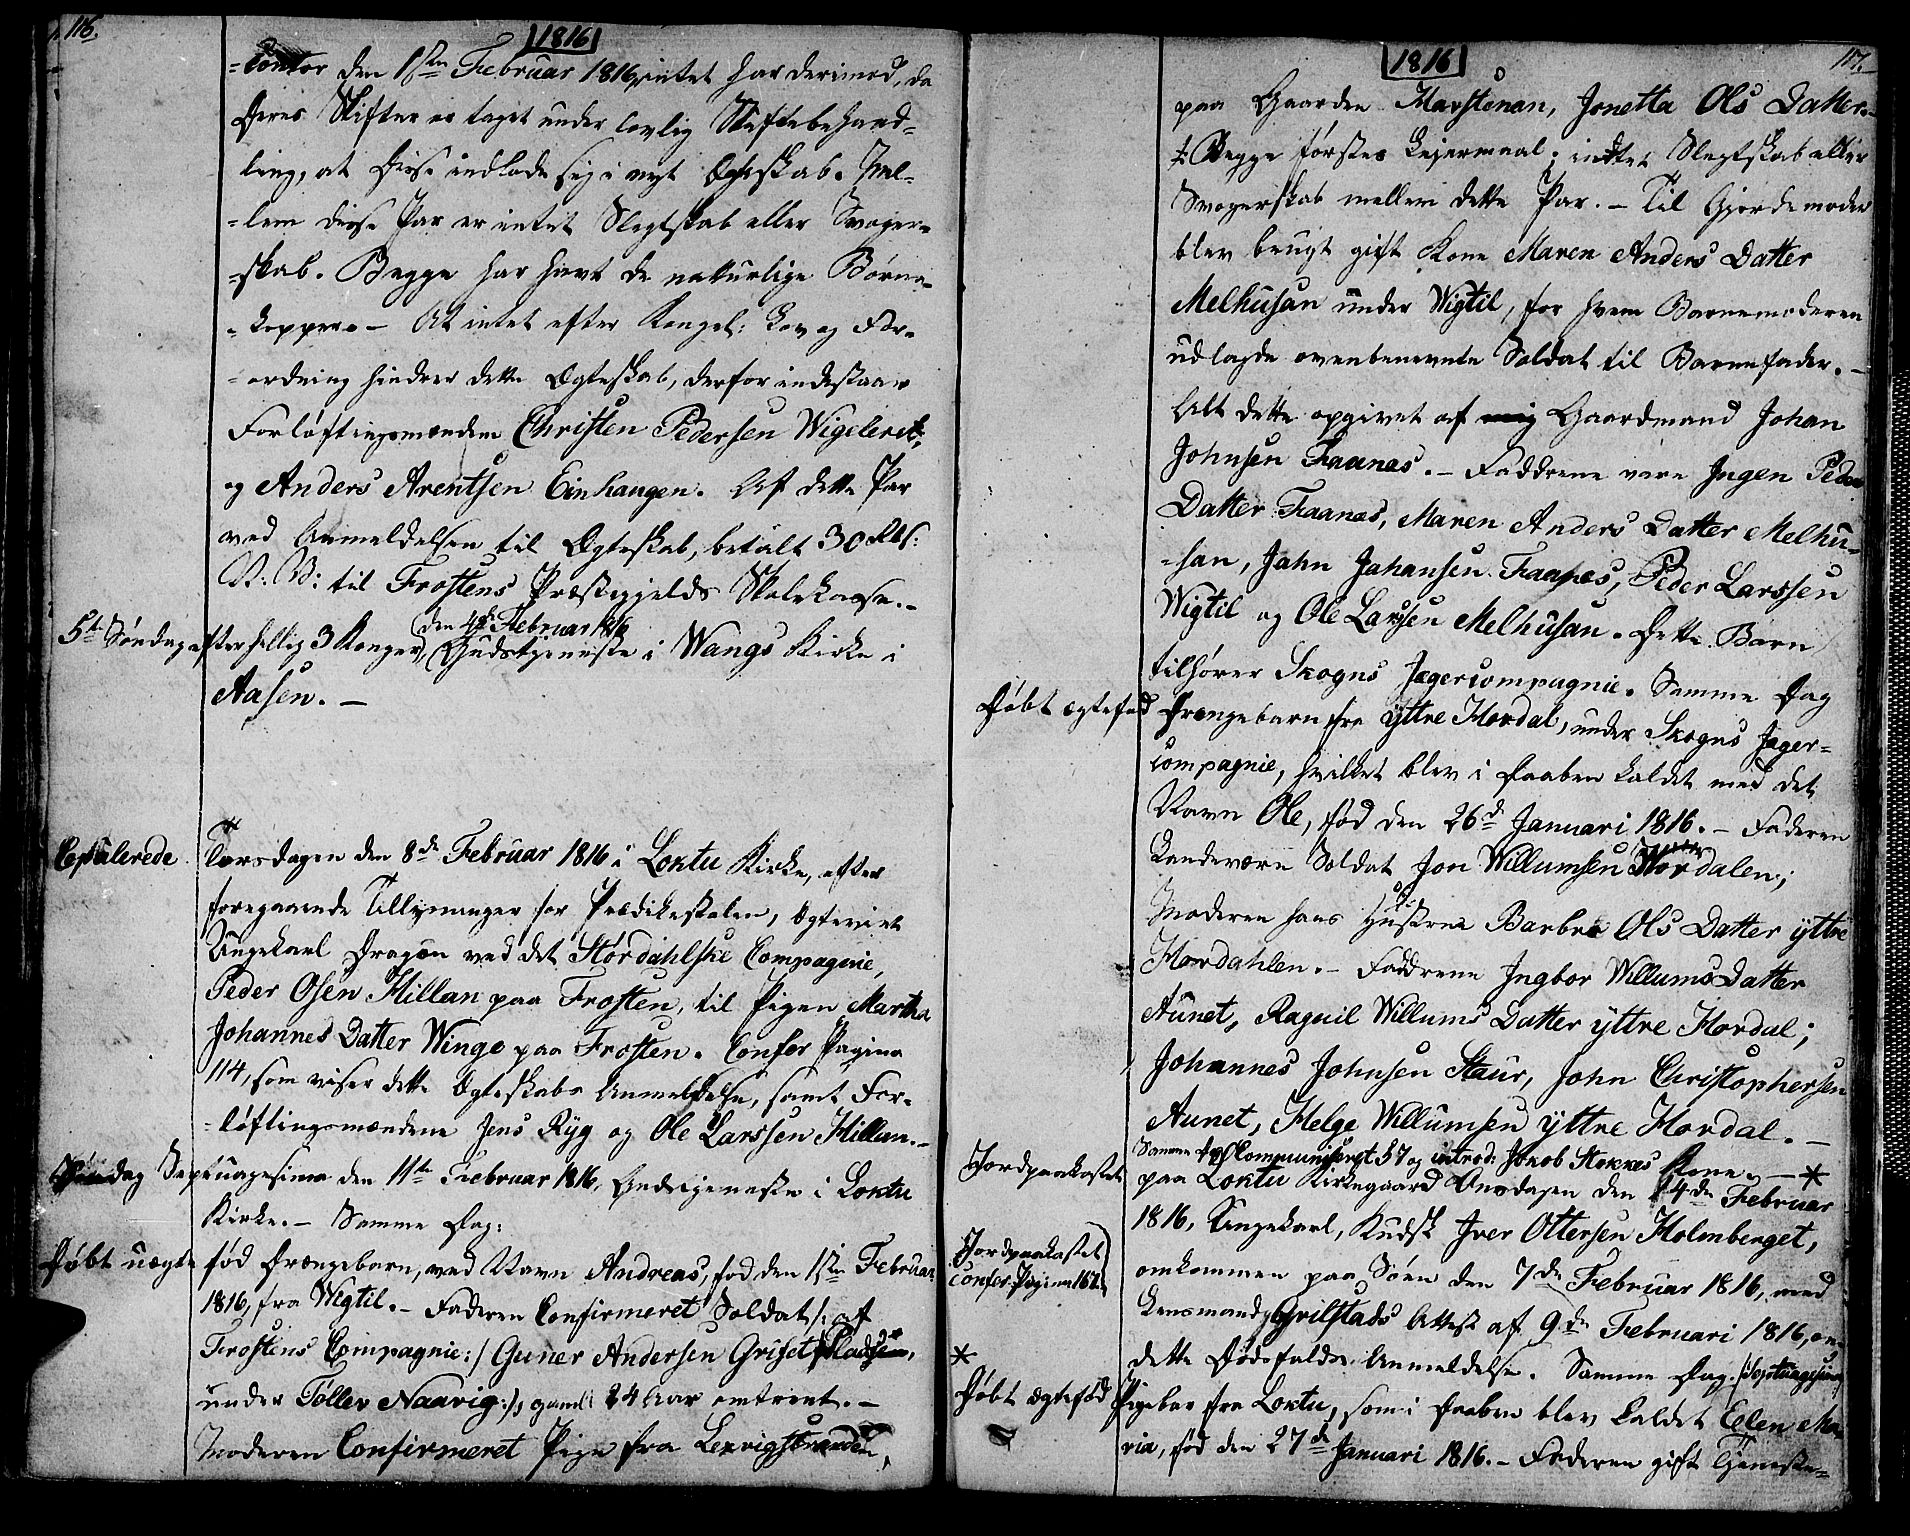 116.
1816
-contor den 1ste Februar 1816, intet har derimod, da
Deres Skifter er taget under lovlig Skiftebehand-
ling, at Disse indlade sig i nyt Ægteskab. Imel-
-lem disse Par er intet Slegtskab eller Svoger-
-skab. Begge har havt de naturlige Børne-
-kopper. - At intet efter Kongel: Lov og For-
-ordning hindrer dette Ægteskab, derfor indestaar
Forløftingsmændene Christen Pedersen Wigeleret,
og Anders Arentsen Einhaugen. Af dette Par
ved Anmeldelsen til Ægteskab, betalt 30 Rbs:
N: V: til Frostens Præstegjelds Skolekasse. -
den 4de Februar 1816
5te Søndag efter hellig 3 Konger, Gudstjeneste i Wangs Kirke i
Aasen. -
Copulerede Torsdagen den 8de Februar 1816 i Loktu Kirke, efter
foregaaende Tillysninger for Prædikestolen, ægteviet
Ungekarl Dragon ved det Størdahlske Compagnie,
Peder Olsen Hillan paa Frosten, til Pigen Martha
Johannes Datter Winge paa Frosten. Confer Pagina
114, som viser dette Ægteskabs Anmeldelse, samt For-
-løftingsmændene Jens Ryg og Ole Larssen Hillan. -
Søndag Septuagesima den 11te Februar 1816, Gudstjeneste i Loktu
Kirke. - Samme Dag:
Døbt uægte fød Drængebarn, ved Navn Andreas, fød den 1ste Februar
1816, fra Wigtil. - Faderen Confirmeret Soldat /: af
Frostens Compagnie :/ Guner Andersen Griset Pladsen,
under Tøller Naavig :/, gaml 24 Aar omtrent. -
Moderen Confirmeret Pige fra Lexvigstranden,
117.
1816
paa Gaarden Harstenan, Jonetta Ols Datter.
/: Begge førstes Lejermaal; intet Slegtskab eller
Svogerskab mellem dette Par. - Til Gjordemoder
blev brugt gift Kone Maren Anders Datter
Melhusan under Wigtil, for hvem Barnemoderen
udlagde ovenbenevnte Soldat til Barnefader. -
Alt dette opgivet af mig Gaardmand Johan
Johnsen Faanes. - Faddrene vare Ingen Peder
Datter Faanes, Maren Anders Datter Melhu-
-san, Jahn Johansen Faanes, Peder Larssen
Wigtil og Ole Larssen Melhusan. Dette Barn
tilhører Skogns Jægercompagnie. Samme Dag
Døbt ægtefød Drængebarn fra yttre Hordal, under Skogns Jæger-
compagnie, hvilket blev i Daaben kaldet med det
Navn Ole, fød den 26de Januari 1816. - Faderen
Landeværn Soldat Jon Willumsen Hordalen;
Moderen hans Hustrue Barbra Ols Datter yttre
Hordahlen. - Faddrene Ingbor Willums Datter
Aunet, Raguil Willums Datter yttre Hordal;
Johannes Johnsen Staur, John Christophersen
Aunet, Helge Willumsen yttre Hordal. -
Samme Dag Communiceret 57 og introd: Jakob Stokkes Kone. - *
Jordpaakastet paa Loktu Kirkegaard Onsdagen den 14de Februar
1816, Ungekarl, Kudsk Iver Ottersen Holmberget,
Jordpaakastet
confer Pagina 162.
omkommen paa Søen den 7de Februar 1816, med
Lensmand Grilstads Attest af 9de Februari 1816, om
dette Dødsfalds Anmeldelse. Samme Dag /: Septuagesima
*
Døbt ægtefød Pigebar fra Loktu, som i Daaben blev kaldet Eelen Ma-
ria, fød den 27de Januari 1816. - Faderen gift Tjeneste-